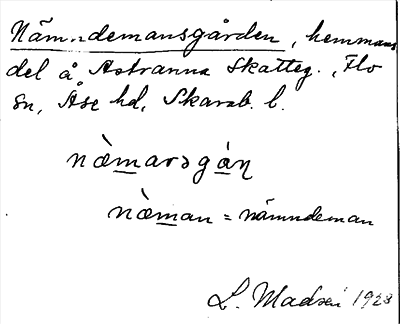 Näm-ndemansgården, hemmans
del å Astranna Skatteg., Flo
sn, Åse hd, Skarab. l.
næ̀marsgán
næ̀man = nämndeman
L. Madsén 1928